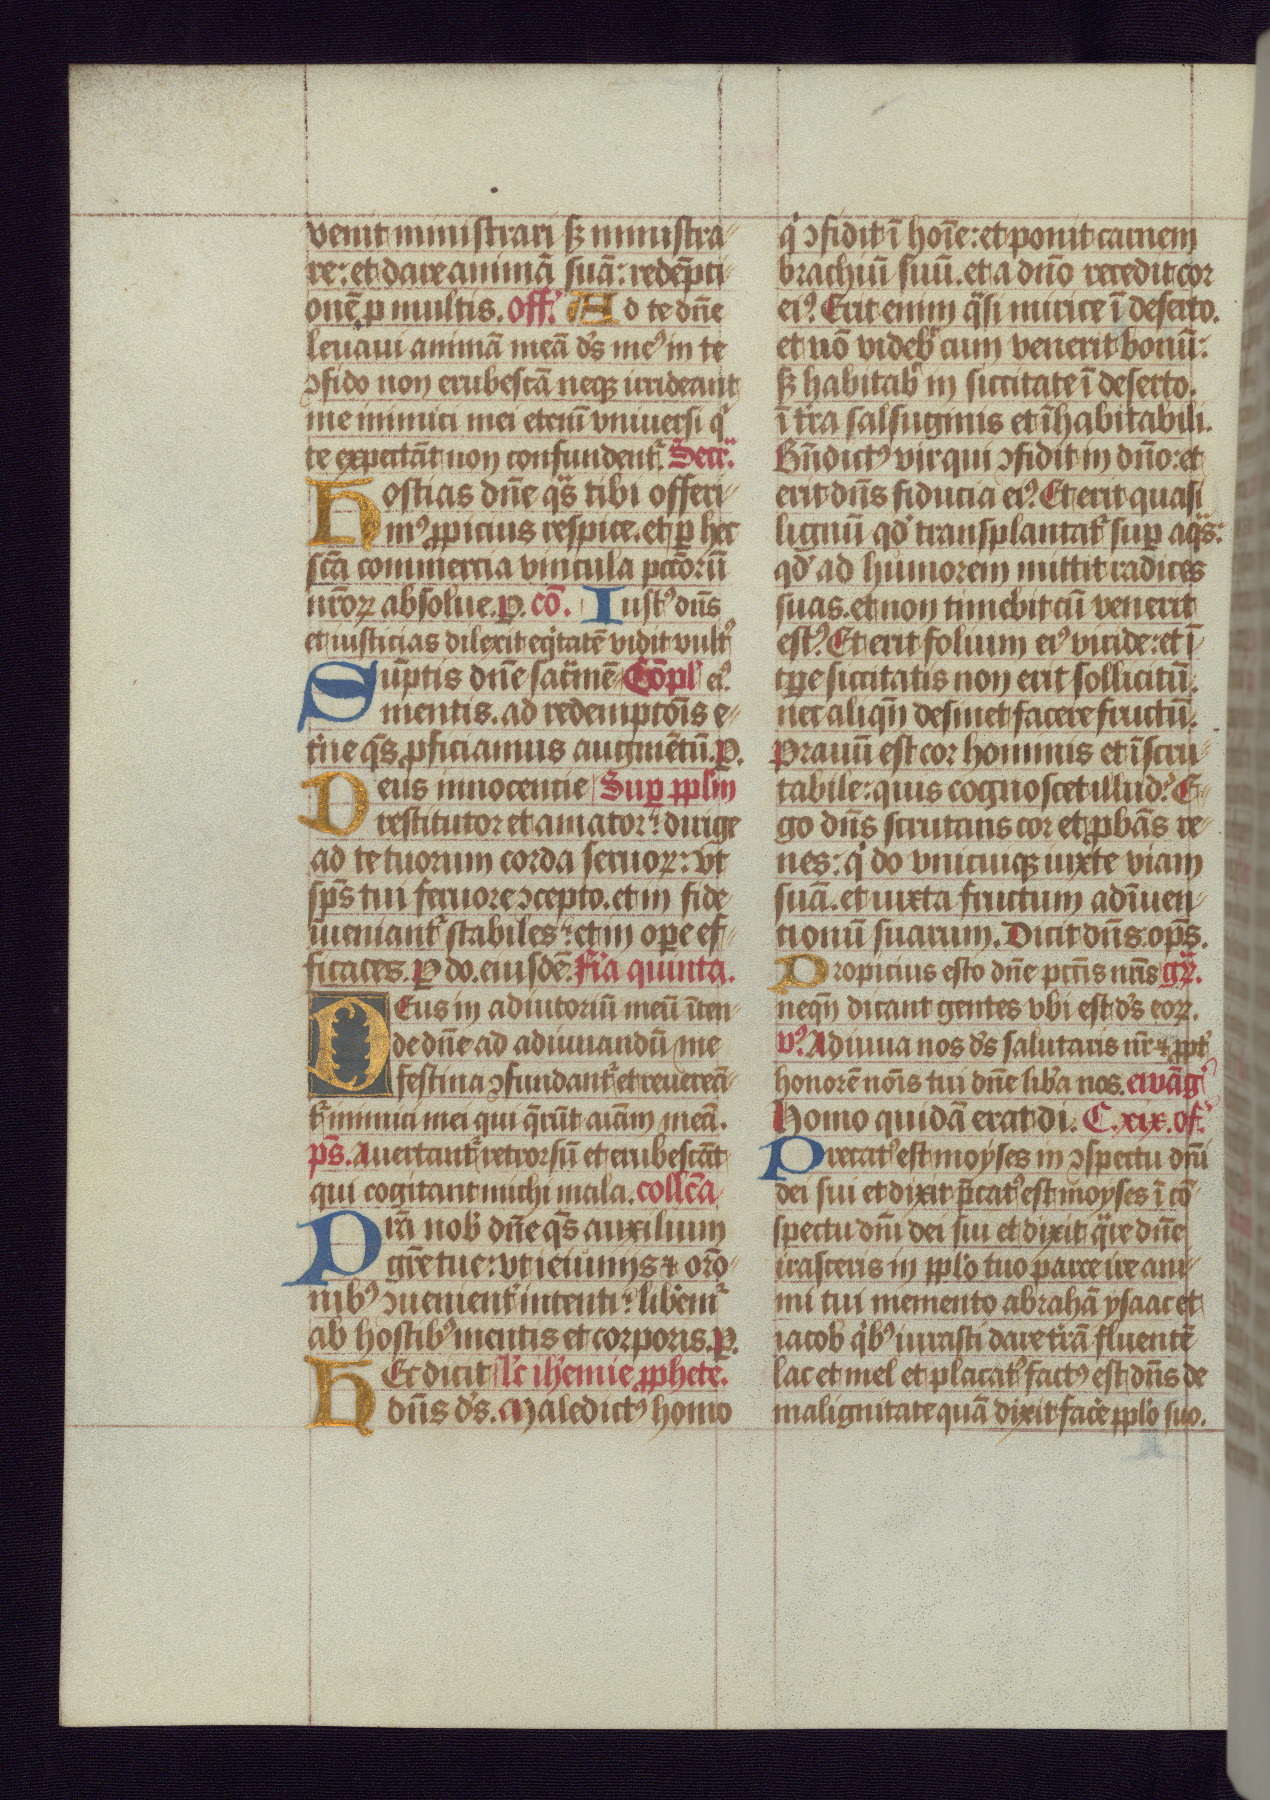 venit ministrari sꝫ ministra-
re: et dare animā suā: redēpti-
onē ꝓ multis. Off. Ad te dn̄e
levavi animā meā ds̄ meꝰ in te
ꝯfido non erubescā neqꝫ irrideant
me inimici mei etenī universi qͥ
te expectāt non confundentᷣ. Secrͣ.
Hostias dn̄e qͣs tibi offeri-
mꝰ ꝓpicius respice. et ꝑ hec
scā commercia vincula pccōrū
nr̄oꝝ absolve. P. cō. Iustꝰ dn̄s
et iusticias dilexit eqͥtatē vidit vultꝰ
Sūptis dn̄e sacͣmē- Cōpl eiꝰ.
mentis. ad redemptōis e-
tn̄e qs̄ ꝓficiamus augmētū. P.
Deus innocentie Sup ppl̄m
restitutor et amator: dirige
ad te tuorum corda servoꝝ: vt
sps̄ tui fervore ꝯcepto. et in fide
īveniantᷣ stabiles: et in oꝑe ef-
ficaces. P do. eiusdē. Fīa quinta.
DEus in adiutoriū meū īten-
de dn̄e ad adiuvandū me
festina ꝯfundantᷣ et revereā-
tᷣ inimici mei qui qͣrūt aīam meā.
ps̄. Avertantᷣ retrorsū et erubescāt
qui cogitant michi mala. collc̄a
Prā nob dn̄e qs̄ auxilium
gr̄e tue: vt ieiuniis ⁊ orō-
nibꝰ ꝯvenientᷣ intenti: liberemᷣ
ab hostibꝰ mentis et corporis. P.
HEc dicit lc̄ ihemie ꝓphete.
dn̄s ds̄. Maledictꝰ homo
qͥ ꝯfidit ī hoīe: et ponit carnem
brachiū suū. et a dn̄o recedit cor
eiꝰ. Erit enim qͣsi mirice ī deserto.
et nō videbͥ cum venerit bonū:
sꝫ habitabͥ in siccitate ī deserto.
ī tr̄a salsuginis et īhabitabili.
Bn̄dictꝰ vir qui ꝯfidit in dn̄o: et
erit dn̄s fiducia eiꝰ. Et erit quasi
lignū qd̓ transplantatᷣ suꝑ aqͣs:
qd̓ ad humorem mittit radices
suas. et non timebit cū venerit
estꝰ. Et erit folium eiꝰ viride: et ī
tꝑe siccitatis non erit sollicitū.
nec aliqn̄ desinet facere fructū.
Pravū est cor hominis et īscru-
tabile: quis cognoscet illud? E-
go dn̄s scrutans cor et ꝓbās re-
nes: qͥ do unicuiqꝫ iuxte viam
suā. et iuxta fructum adīven-
tionū suarum. Dicit dn̄s: ops̄.
Propicius esto dn̄e pctīs nr̄is gr̄.
neqn̄ dicant gentes vbi est ds̄ eoꝝ.
vꝰ. Adiuva nos ds̄ salutaris nr̄ ⁊ ꝓptͥ
honorē noīs tui dn̄e libera nos. ewāgͫ
Homo quidā erat di. C. xix. of.
Precatꝰ est moyses in ꝯspectu dn̄i
dei sui et dixit p̄catꝰ est moyses ī cō-
spectu dn̄i dei sui et dixit qͣre dn̄e
irasceris in ppl̄o tuo parce ire ani-
mi tui memento abrahā ysaac et
iacob qͥbꝰ iurasti dare tr̄ā fluentē
lac et mel et placatꝰ factꝰ est dn̄s de
malignitate quā dixit facͤe ppl̄o suo.